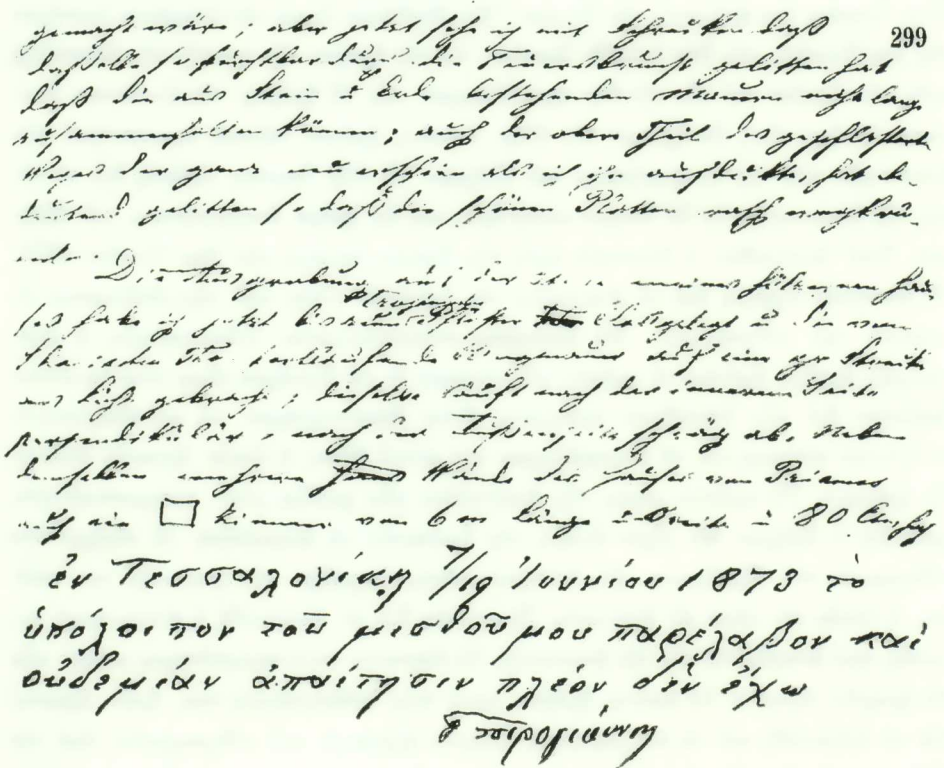 299
gemacht wäre; aber jetzt sehe ich mit Schrecken daß
dasselbe so furchtbar durch die Feuersbrunst gelitten hat
daß die aus Stein u Erde bestehenden Mauern nicht lange
zusammenhalten können; auch der obere Theil des gepflasterten
Weges der ganz neu erschien als ich ihn aufdeckte, hat be-
deutend gelitten so daß die schönen Platten rasch wegbrö-
Die Ausgrabung auf der meines hölzernen Hau-
Trojanische
ses habe ich jetzt bis zum bloßgelegt u die vom
Skaeischen Thor fortlaufende Ringmauer auf eine gr Strecke
ans Licht gebracht; dieselbe läuft nach der inneren Seite
perpendikulär, nach der Außenseite schräg ab. Neben
derselben mehrere Wände des Hauses von Priamos
auf ein □ Zimmer von 6 m Länge u Breite u 80
ἐν Τεσσαλονίκῃ 7/19 Ἰουνίου 1873 τὸ
ὑπόλοιπον τοῦ μισθοῦ μου παρέλαβον καὶ
οὐδεμίαν ἀπαίτησιν πλέον δὲν ἔχω